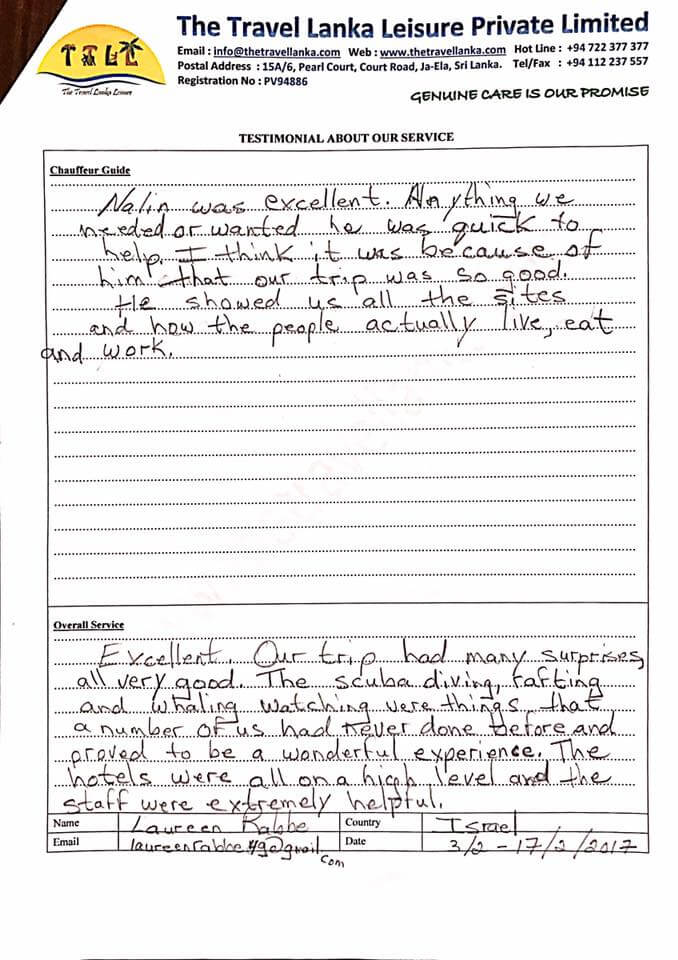 TSLL
The Travel Lanka Leisure
The Travel Lanka Leisure Private Limited
Email : info@thetravellanka.com Web : www.thetravellanka.com Hot Line : +94 722 377 377
Postal Address : 15A/6, Pearl Court, Court Road, Ja-Ela, Sri Lanka. Tel/Fax : +94 112 237 557
Registration No : PV94886
GENUINE CARE IS OUR PROMISE
TESTIMONIAL ABOUT OUR SERVICE
Chauffeur Guide
Nalin was excellent. Anything we
needed or wanted he was quick to
help. I think it was because of
him that our trip was so good.
He showed us all the sites
and how the people actually live, eat
and work.
Overall Service
Excellent. Our trip had many surprises,
all very good. The scuba diving, rafting
and whaling watching were things that
a number of us had never done before and
proved to be a wonderful experience. The
hotels were all on a high level and the
staff were extremely helpful.
Name Laureen Country Israel
Email Date 3/2 - 17/2/2017
com